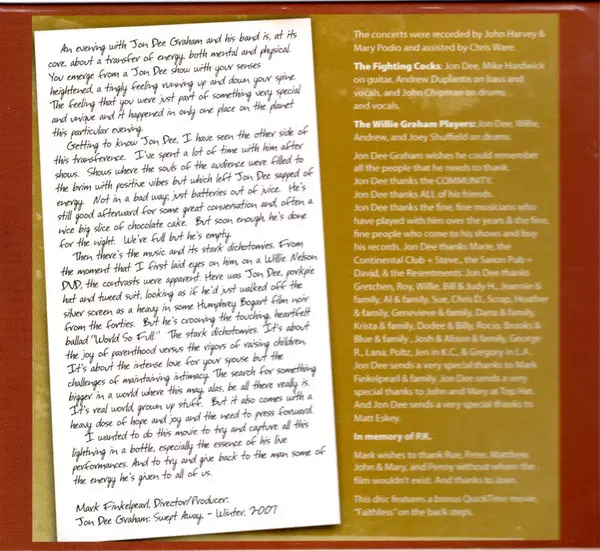 An evening with Jon Dee Graham and his band is, at its
core, about a transfer of energy, both mental and physical.
You emerge from a Jon Dee show with your senses
heightened, a tingly feeling running up and down your spine.
The feeling that you were just part of something very special
and unique and it happened in only one place on the planet
this particular evening.
Getting to know Jon Dee, I have seen the other side of
this transference. I've spent a lot of time with him after
shows. Shows where the souls of the audience were filled to
the brim with positive vibes but which left Jon Dee sapped of
energy. Not in a bad way, just batteries out of juice. He's
still good afterward for some great conversation and, often a
nice big slice of chocolate cake. But soon enough, he's done
for the night. We've full but he's empty.
Then there's the music and its stark dichotomies. From
the moment that I first laid eyes on him on a Willie Nelson
DVD, the contrasts were apparent. Here was Jon Dee, porkpie
hat and tweed suit, looking as if he'd just walked off the
silver screen as a heavy in some Humphrey Bogart film noir
from the forties. But he's crooning the touching, heartfelt
ballad "World So Full." The stark dichotomies. It's about
the joy of parenthood versus the vigors of raising children.
It's about the intense love for your spouse but the
challenges of maintaining intimacy. The search for something
bigger in a world where this may, alas, be all there really is.
It's real world, grown up stuff. But it also comes with a
heavy dose of hope and joy and the need to press forward.
I wanted to do this movie to try and capture all this
lightning in a bottle, especially the essence of his live
performances. And to try and give back to the man some of
the energy he's given to all of us.
Mark Finkelpearl, Director/Producer.
Jon Dee Graham: Swept Away. - Winter, 2007
The concerts were recorded by John Harvey &
Mary Podio and assisted by Chris Ware.
The Fighting Cocks: Jon Dee, Mike Hardwick
on guitar, Andrew Duplantis on bass and
vocals, and John Chipman on drums
and vocals.
The Willie Graham Players: Jon Dee, Willie,
Andrew, and Joey Shuffield on drums.
Jon Dee Graham wishes he could remember
all the people that he needs to thank.
Jon Dee thanks the COMMUNITY.
Jon Dee thanks ALL of his friends.
Jon Dee thanks the fine, fine musicians who
have played with him over the years & the fine,
fine people who come to his shows and buy
his records. Jon Dee thanks Marie, the
Continental Club + Steve., the Saxon Pub +
David, & the Resentments. Jon Dee thanks
Gretchen, Roy, Willie, Biff & Judy H., Jeannie &
family, Al & family, Sue, Chris D., Scrap, Heather
& family, Genevieve & family, Dana & family,
Krista & family, Dodee & Billy, Rocio, Brooks &
Blue & family , Josh & Alisoun & family, George
R., Lana, Poltz, Jen in K.C., & Gregory in L.A.
Jon Dee sends a very special thanks to Mark
Finkelpearl & family. Jon Dee sends a very
special thanks to John and Mary at Top Hat.
And Jon Dee sends a very special thanks to
Matt Eskey.
In memory of P.K.
Mark wishes to thank Rue, Peter, Matthew,
John & Mary, and Penny without whom the
film wouldn't exist. And thanks to Joan.
This disc features a bonus QuickTime movie,
"Faithless" on the back steps.